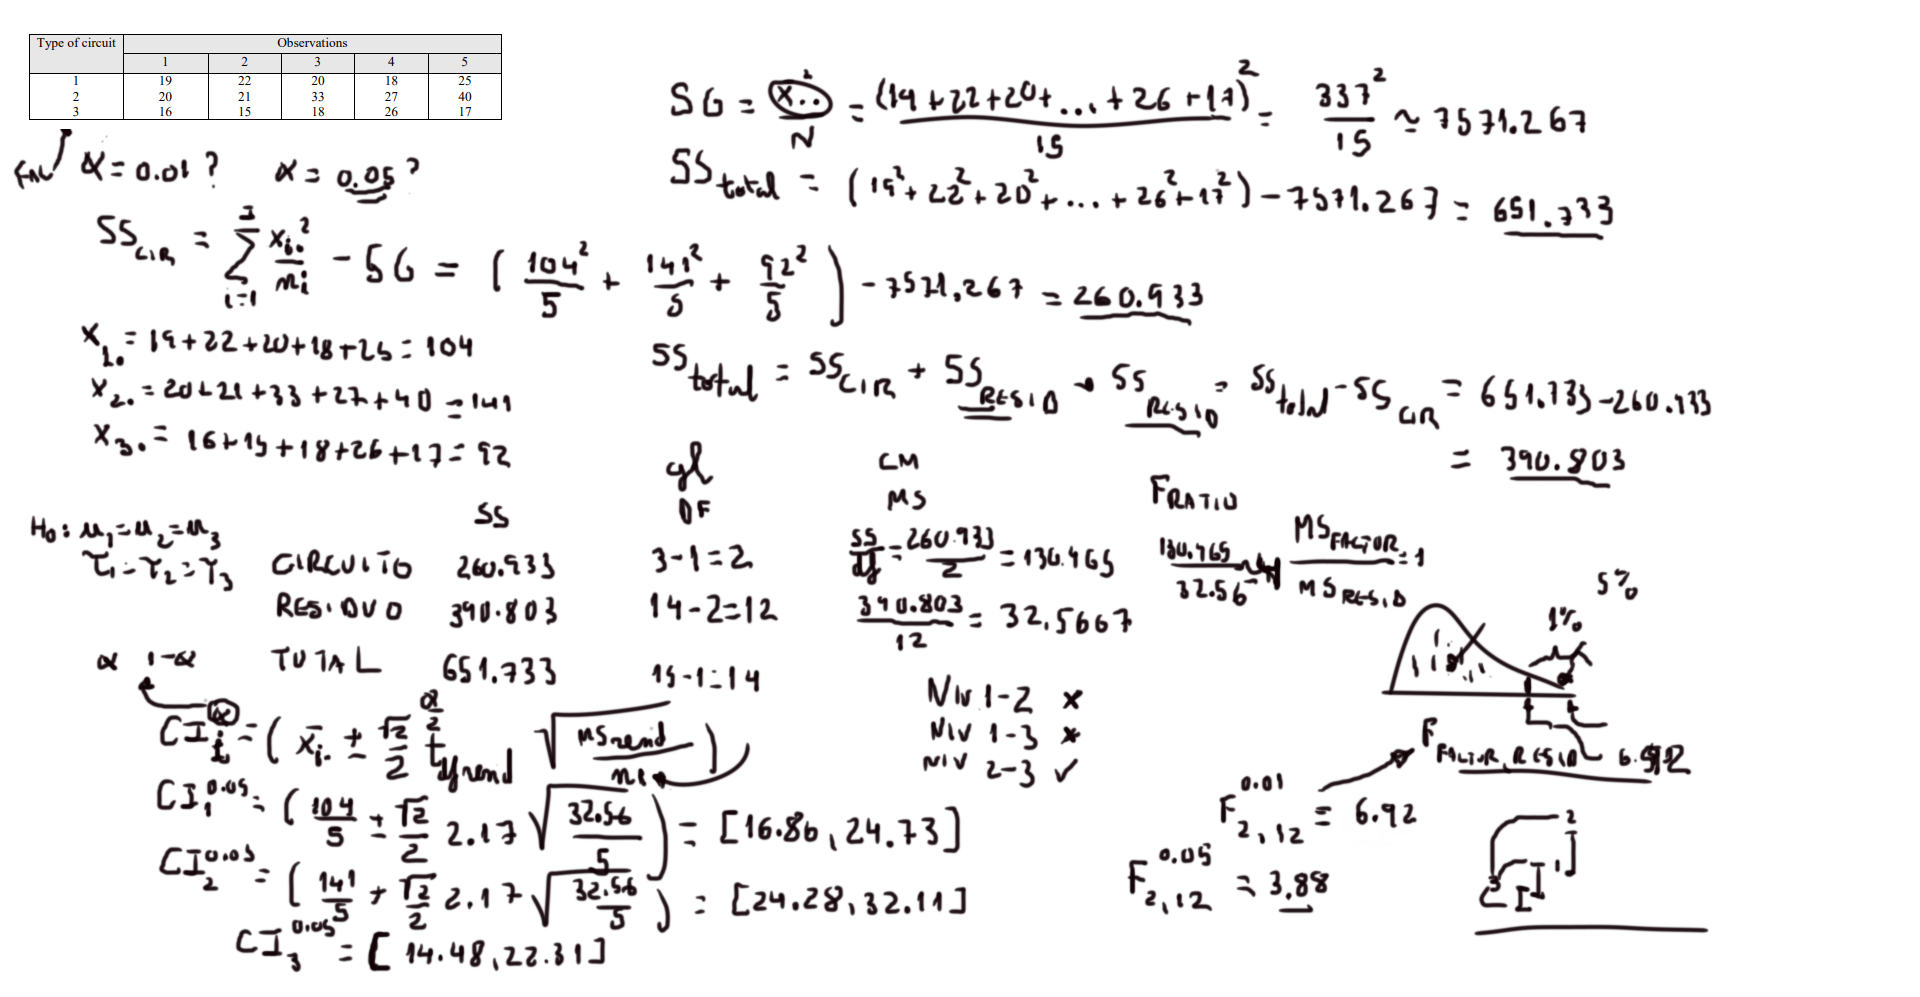 Type of circuit Observations
1 2 3 4 5
1 19 22 20 18 25
2 20 21 33 27 40
3 16 15 18 26 17
α = 0.01 ? α = 0.05 ?
SG = X..² / N = (19+22+20+...+26+17)² / 15 = 337² / 15 ≈ 7571.267
SS total = (19²+22²+20²+...+26²+17²) - 7571.267 = 651.733
SS CIR = Σ i=1 3 Xi.² / ni - SG = ( 104²/5 + 141²/5 + 92²/5 ) - 7571,267 = 260.933
X1. = 19+22+20+18+25 = 104
X2. = 20+21+33+27+40 = 141
X3. = 16+15+18+26+17 = 92
SS total = SS CIR + SS RESID → SS RESID = SS total - SS CIR = 651.733-260.933
= 390.803
H0: μ1=μ2=μ3
τ1=τ2=τ3
SS gl DF CM MS F RATIO
CIRCUITO 260.933 3-1=2 SS/df = 260.933/2 = 130.465 130.465/32.56 → MS FACTOR / MS RESID = 1
RESIDUO 390.803 14-2=12 390.803/12 = 32.5667
TOTAL 651.733 15-1=14
5%
1%
α 1-α
CI i α = ( x̄i. ± √2/2 t α/2 √ MS / ni )
CI1 0.05 = ( 104/5 ± √2/2 2.17 √ 32.56/5 ) = [16.86, 24.73]
CI2 0.05 = ( 141/5 + √2/2 2.17 √ 32.56/5 ) = [24.28, 32.11]
CI3 0.05 = [14.48, 22.31]
NIV 1-2 x
NIV 1-3 x
NIV 2-3 ✓
F FACTOR, RESID
F 2,12 0.01 = 6.92
F 2,12 0.05 = 3.88
2
1
3